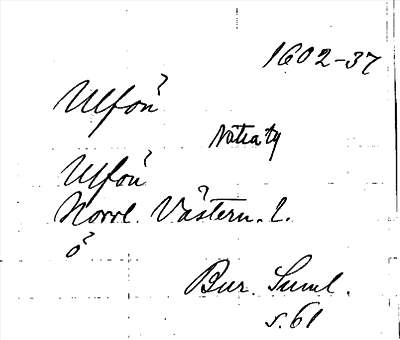 1602-37
Ulfön
Ulfön
Norrl. Västern. l.
ö
Bur. Suml.
s. 61